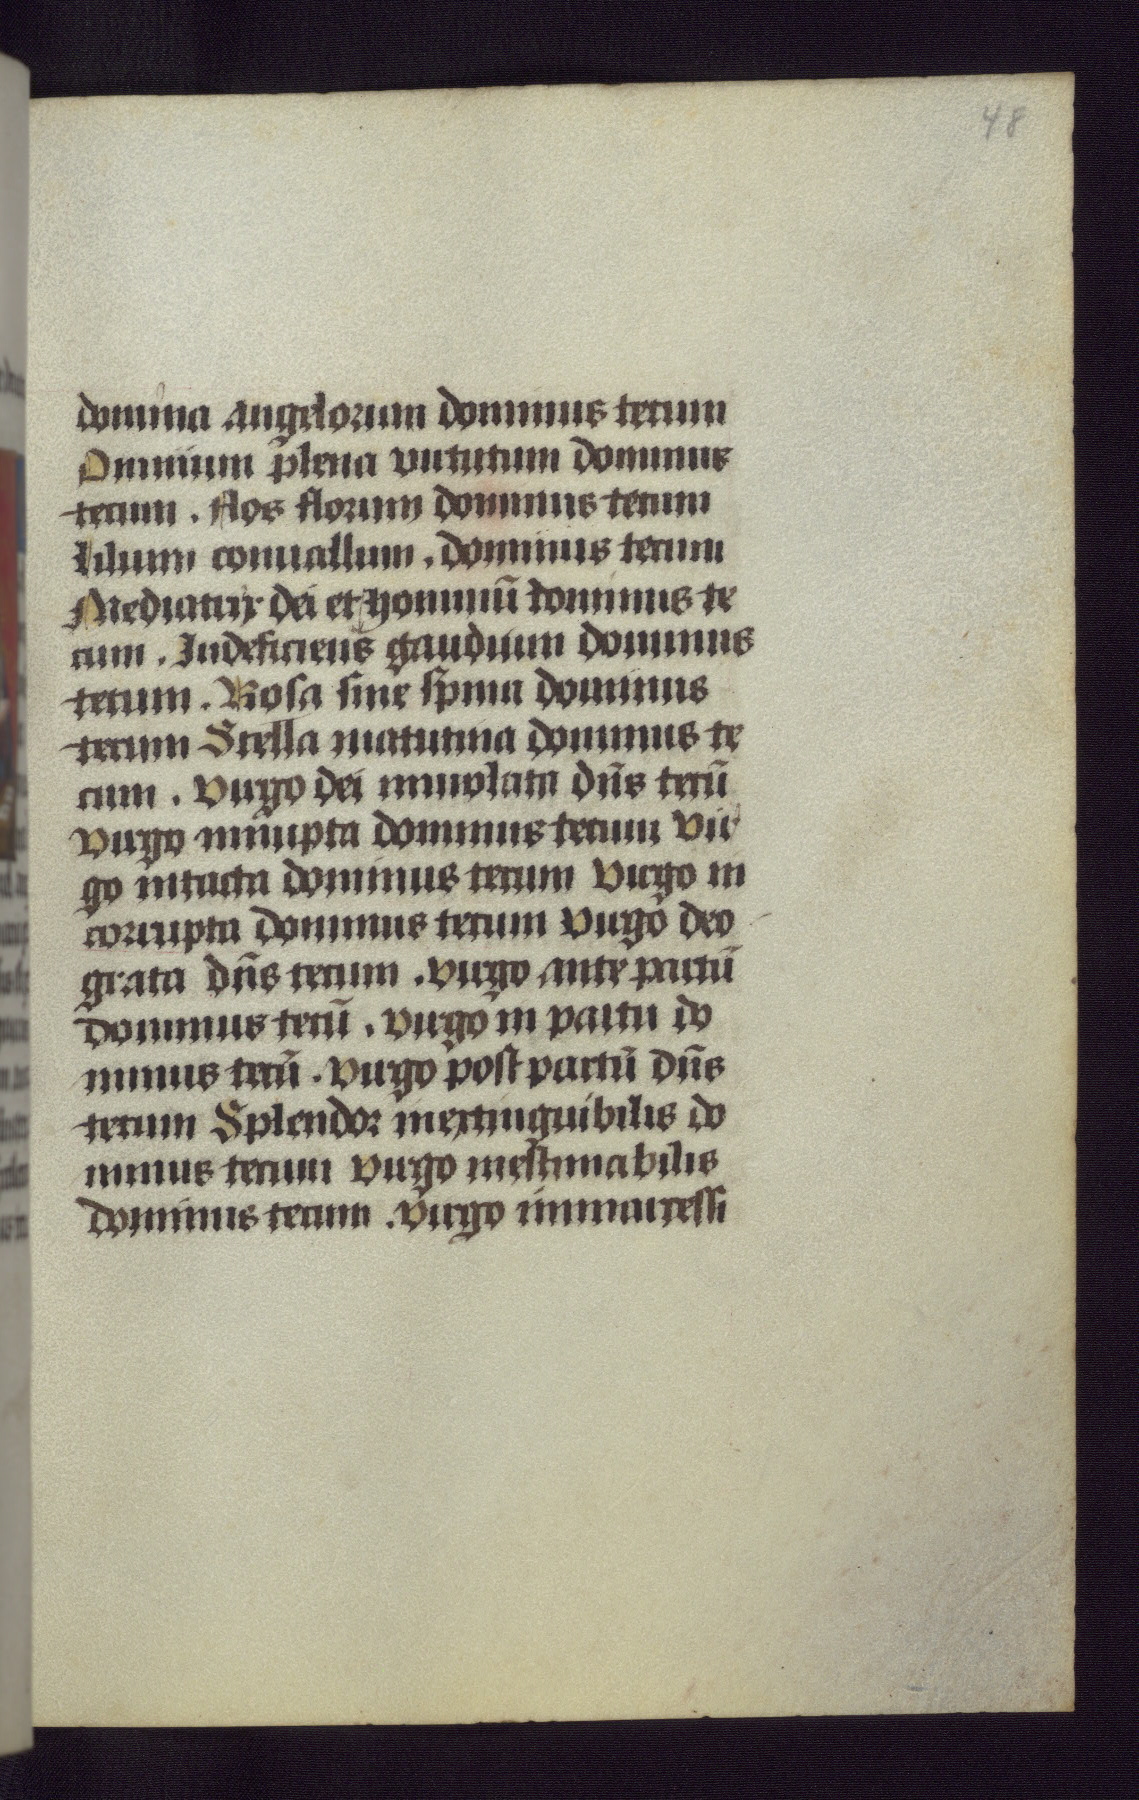 48
domina angelorum dominus tecum
Omnium plena virtutum dominus
tecum . flos florum dominus tecum
lilium conuallium . dominus tecum
Mediatrix dei et hominũ dominus te
cum . Indeficiens gaudium dominus
tecum . Rosa sine spina dominus
tecum Stella matutina dominus te
cum . virgo dei inuiolata dñs tecũ
virgo innupta dominus tecum vir
go intacta dominus tecum virgo in
corrupta dominus tecum virgo deo
grata dñs tecum . virgo ante partũ
dominus tecũ . virgo in partu do
minus tecũ . virgo post partũ dñs
tecum Splendor inextinguibilis do
minus tecum virgo inestimabilis
dominus tecum . virgo immarcessi